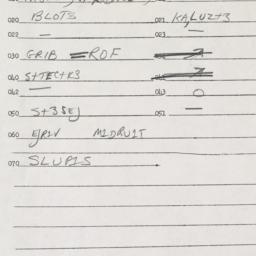 020 BLOTS 021 KALUZ+3
022 — 023 —
030 GRIB ROF
040 S+TEC+R3
042 — 043 O
050 S+3SEJ 051 —
060 EJRIV MIDRUIT
070 SLUPIS